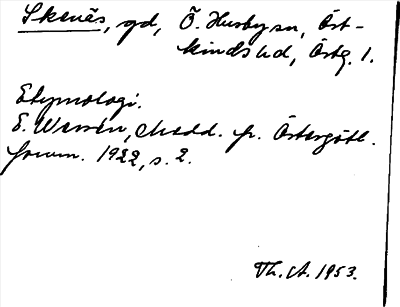 Skenäs, gd, Ö. Husby sn, Öst-
kinds hd, Östg. l.
Etymologi.
E. Wessén, Medd. fr. Östergötl.
fornm. 1922, s. 2.
Th. A. 1953.